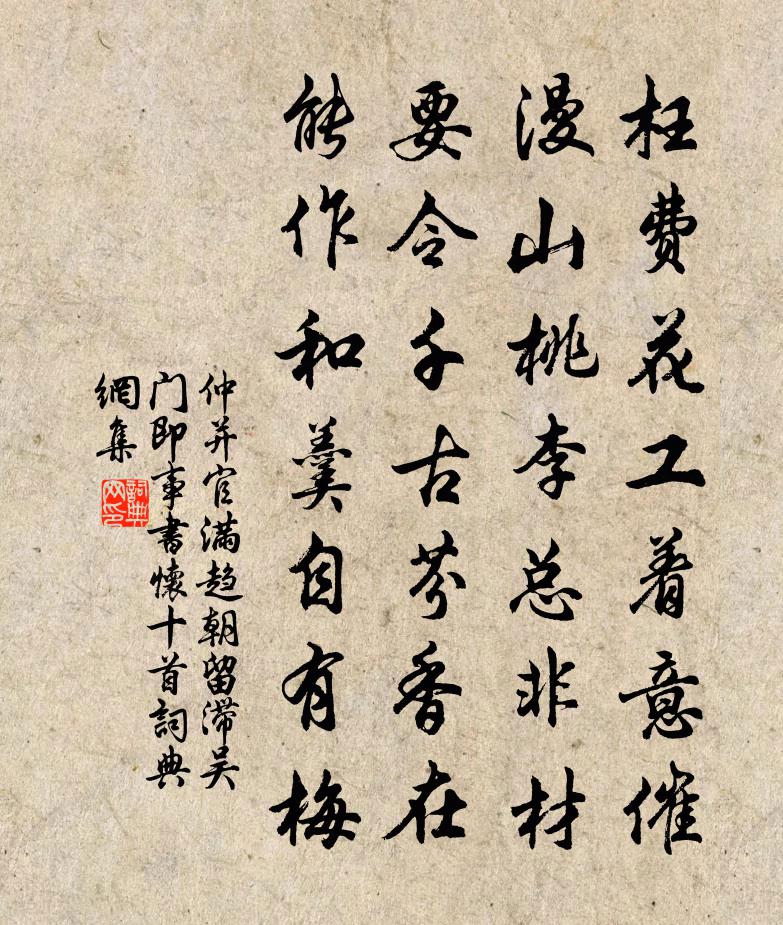 枉费花工着意催
漫山桃李总非材
要令千古芬香在
能作和羹自有梅
仲并官满趋朝留滞吴
门即事书怀十首词典
網集
詞典
网印